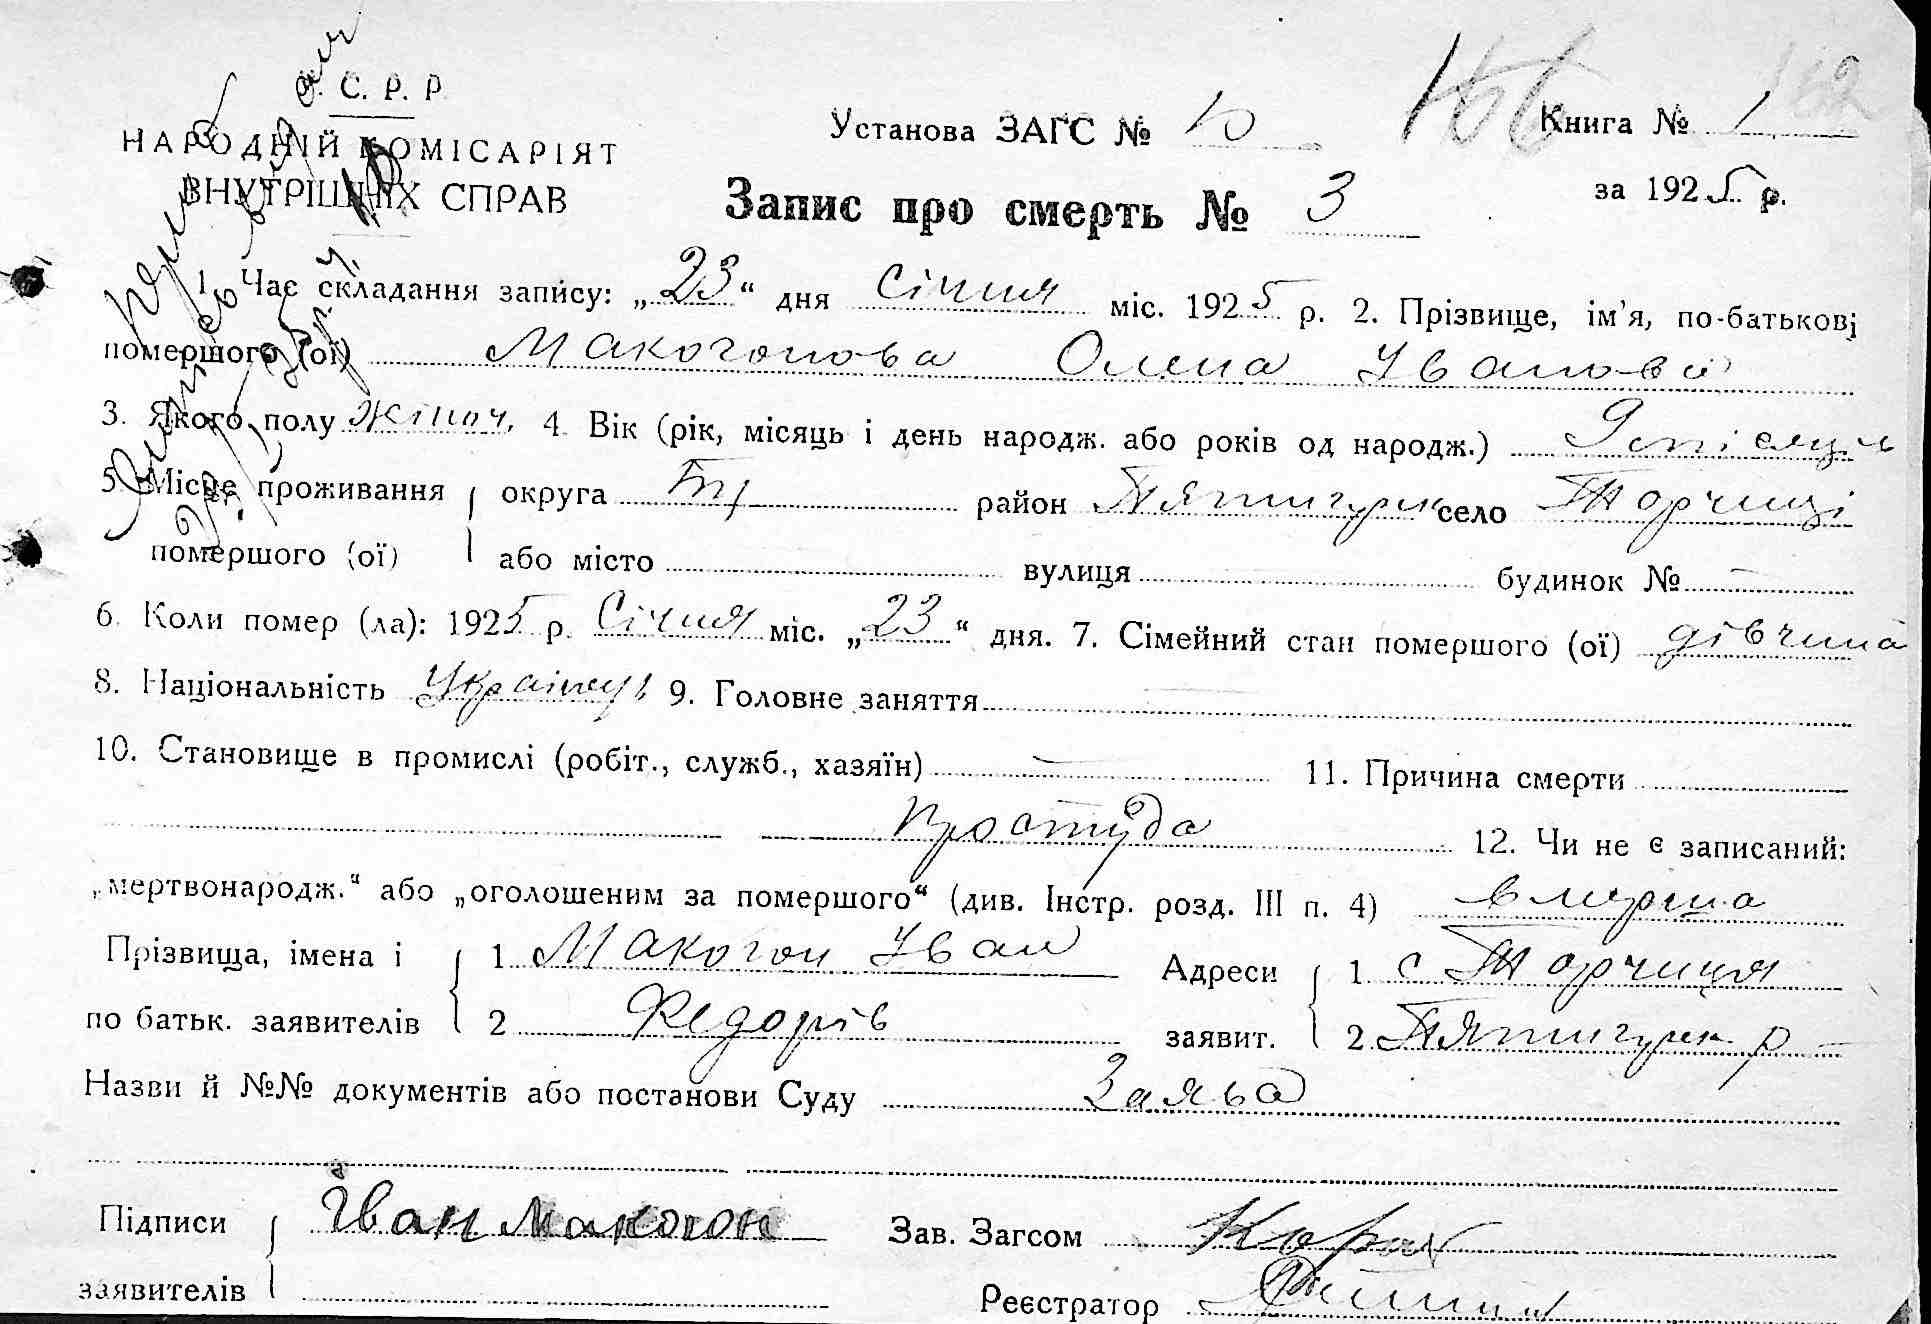 С. Р. Р.
НАРОДНІЙ КОМІСАРІЯТ
ВНУТРІШНІХ СПРАВ
Установа ЗАГС № 10
166
Книга № 1
за 1925 р.
Запис про смерть № 3
1. Час складання запису: „23“ дня Січня міс. 1925 р. 2. Прізвище, ім'я, по-батькові
помершого (ої) Макогонова Олена Іванова
3. Якого полу жіноч. 4. Вік (рік, місяць і день народж. або років од народж.) 9 місяців
5. Місце проживання округа БЦ район Пятигирск село Торчиці
помершого (ої) або місто вулиця будинок № —
6. Коли помер (ла): 1925 р. Січня міс. „23“ дня. 7. Сімейний стан помершого (ої) дівчина
8. Національність Українц. 9. Головне заняття
10. Становище в промислі (робіт., служб., хазяїн) — 11. Причина смерти
простуда 12. Чи не є записаний:
„мертвонародж.“ або „оголошеним за помершого“ (див. Інстр. розд. III п. 4) вмерша
Прізвища, імена і 1 Макогон Іван Адреси 1 с Торчиця
по батьк. заявителів 2 Федорів заявит. 2 Пятигирск. р —
Назви й №№ документів або постанови Суду Заява
Підписи Іван Макогон Зав. Загсом
заявителів Реєстратор